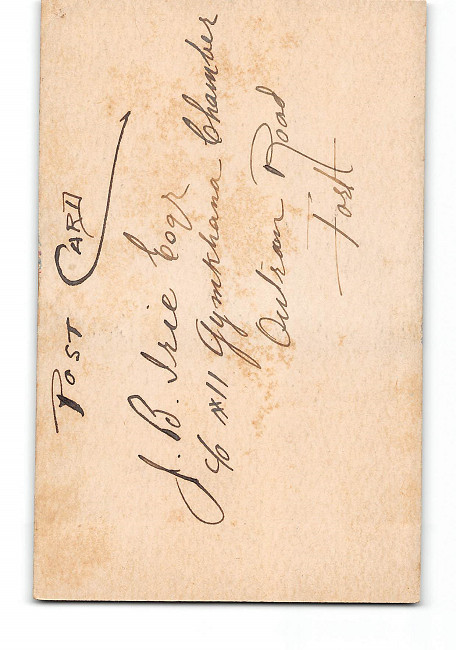 POST CARD
J. B. Irie Esqr
c/o #11 Gymkhana Chamber
Outram Road
Fort